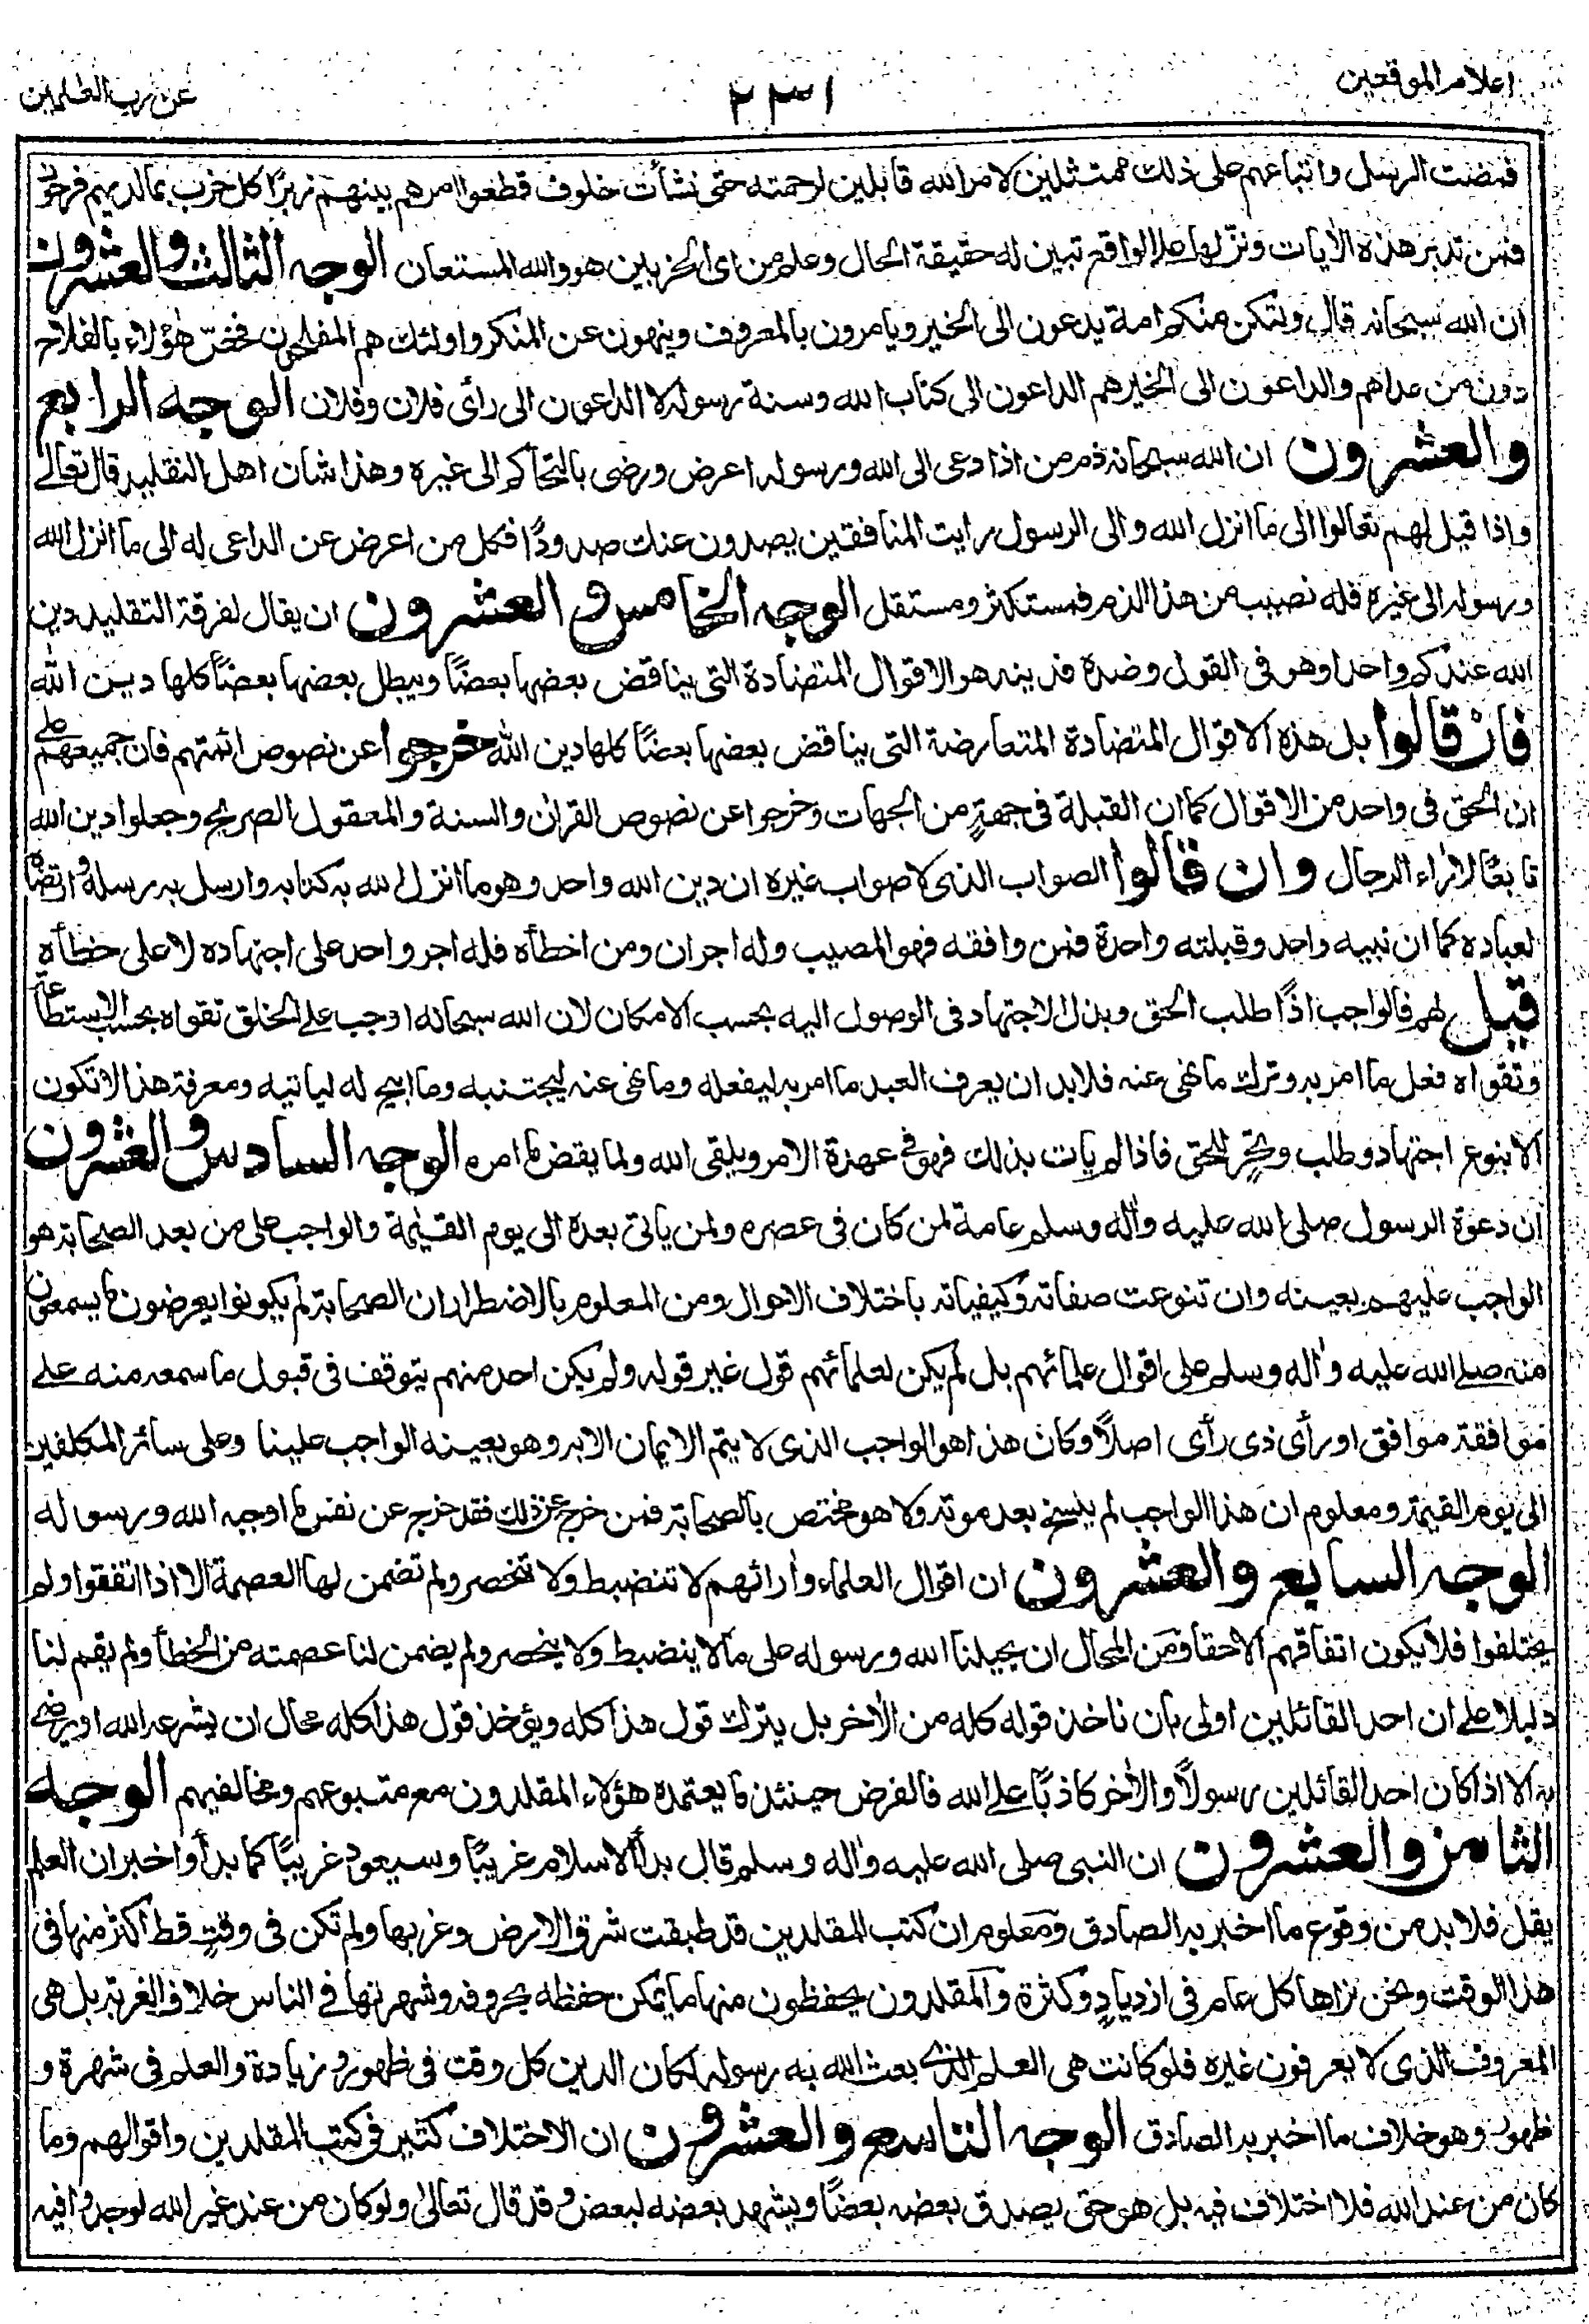 اعلام الموقعين
٢٣١
عن رب العلمين
فمضت الرسل واتباعهم على ذلك ممتثلين لامر الله قابلين لرحمته حتى نشأت خلوف قطعوا امرهم بينهم زبرًا كل حزب بما لديهم فرحون
فمن تدبر هذه الآيات ونزّلها على الواقع تبين له حقيقة الحال وعلم من اى الحزبين هو والله المستعان الوجه الثالث والعشرون
ان الله سبحانه قال ولتكن منكم امة يدعون الى الخير ويامرون بالمعروف وينهون عن المنكر واولئك هم المفلحون فخصّ هؤلاء بالفلاح
دون من عداهم والداعون الى الخير هم الداعون الى كتاب الله وسنة رسوله لا الداعون الى رأى فلان وفلان الوجه الرابع
والعشرون ان الله سبحانه ذم من اذا دعى الى الله ورسوله اعرض ورضى بالتحاكم الى غيره وهذا شان اهل التقليد قال تعالى
واذا قيل لهم تعالوا الى ما انزل الله والى الرسول رايت المنافقين يصدون عنك صدودًا فكل من اعرض عن الداعى له الى ما انزل الله
ورسوله الى غيره فله نصيب من هذا الذم فمستكثر ومستقل الوجه الخامس والعشرون ان يقال لفرقة التقليد دين
الله عندكم واحد او هو فى القول وضده فدينه هو الاقوال المتضادة التى يناقض بعضها بعضًا ويبطل بعضها بعضًا كلها دين الله
فان قالوا بل هذه الاقوال المتضادة المتعارضة التى يناقض بعضها بعضًا كلها دين الله خرجوا عن نصوص ائمتهم فان جميعهم على
ان الحق فى واحد من الاقوال كما ان القبلة فى جهةٍ من الجهات وخرجوا عن نصوص القرآن والسنة والمعقول الصريح وجعلوا دين الله
تابعًا لآراء الرجال وان قالوا الصواب الذى لا صواب غيره ان دين الله واحد وهو ما انزل الله به كتابه وارسل به رسله وارتضاه
لعباده كما ان نبيه واحد وقبلته واحدة فمن وافقه فهو المصيب وله اجران ومن اخطأه فله اجر واحد على اجتهاده لا على خطأه
قيل لهم فالواجب اذًا طلب الحق وبذل الاجتهاد فى الوصول اليه بحسب الامكان لان الله سبحانه اوجب على الخلق تقواه بحسب الاستطاعة
وتقواه فعل ما امر به وترك ما نهى عنه فلابد ان يعرف العبد ما امر به ليفعله وما نهى عنه ليجتنبه وما ابيح له لياتيه ومعرفة هذا لا تكون
الا بنوع اجتهاد وطلب وتحرٍّ للحق فاذا لم يات بذلك فهو فى عهدة الامر ويلقى الله ولما يقض ما امره الوجه السادس والعشرون
ان دعوة الرسول صلى الله عليه وآله وسلم عامة لمن كان فى عصره ولمن ياتى بعده الى يوم القيمة والواجب على من بعد الصحابة هو
الواجب عليهم بعينه وان تنوعت صفاته وكيفياته باختلاف الاحوال ومن المعلوم بالاضطرار ان الصحابة لم يكونوا يعرضون ما يسمعون
منه صلى الله عليه وآله وسلم على اقوال علمائهم بل لم يكن لعلمائهم قول غير قوله ولم يكن احد منهم يتوقف فى قبول ما سمعه منه على
موافقة موافق او رأى ذى رأى اصلًا وكان هذا هو الواجب الذى لا يتم الايمان الا به وهو بعينه الواجب علينا وعلى سائر المكلفين
الى يوم القيمة ومعلوم ان هذا الواجب لم ينسخ بعد موته ولا هو مختص بالصحابة فمن خرج عن ذلك فقد خرج عن نفس ما اوجبه الله ورسوله
الوجه السابع والعشرون ان اقوال العلماء وآرائهم لا تنضبط ولا تنحصر ولم تضمن لها العصمة الا اذا اتفقوا ولم
يختلفوا فلا يكون اتفاقهم الا حقا ومن المحال ان يحيلنا الله ورسوله على ما لا ينضبط ولا ينحصر ولم يضمن لنا عصمته من الخطأ ولم يقم لنا
دليلا على ان احد القائلين اولى بان ناخذ قوله كله من الآخر بل يترك قول هذا كله ويؤخذ قول هذا كله محال ان يشرعه الله او يرضى
به الا اذا كان احد القائلين رسولًا والآخر كاذبًا على الله فالفرض حينئذ ما يعتمده هؤلاء المقلدون مع متبوعهم ومخالفيهم الوجه
الثامن والعشرون ان النبى صلى الله عليه وآله وسلم قال بدأ الاسلام غريبًا وسيعود غريبًا كما بدأ واخبر ان العلم
يقل فلا بد من وقوع ما اخبر به الصادق ومعلوم ان كتب المقلدين قد طبقت شرق الارض وغربها ولم تكن فى وقتٍ قط اكثر منها فى
هذا الوقت ونحن نراها كل عام فى ازديادٍ وكثرة والمقلدون يحفظون منها ما يمكن حفظه بحروفه وشهرتها فى الناس خلاف الغربة بل هى
المعروف الذى لا يعرفون غيره فلو كانت هى العلم الذى بعث الله به رسوله لكان الدين كل وقت فى ظهور وزيادة والعلم فى شهرة و
ظهور وهو خلاف ما اخبر به الصادق الوجه التاسع والعشرون ان الاختلاف كثير فى كتب المقلدين واقوالهم وما
كان من عند الله فلا اختلاف فيه بل هو حق يصدق بعضه بعضًا ويشهد بعضه لبعض وقد قال تعالى ولو كان من عند غير الله لوجدوا فيه